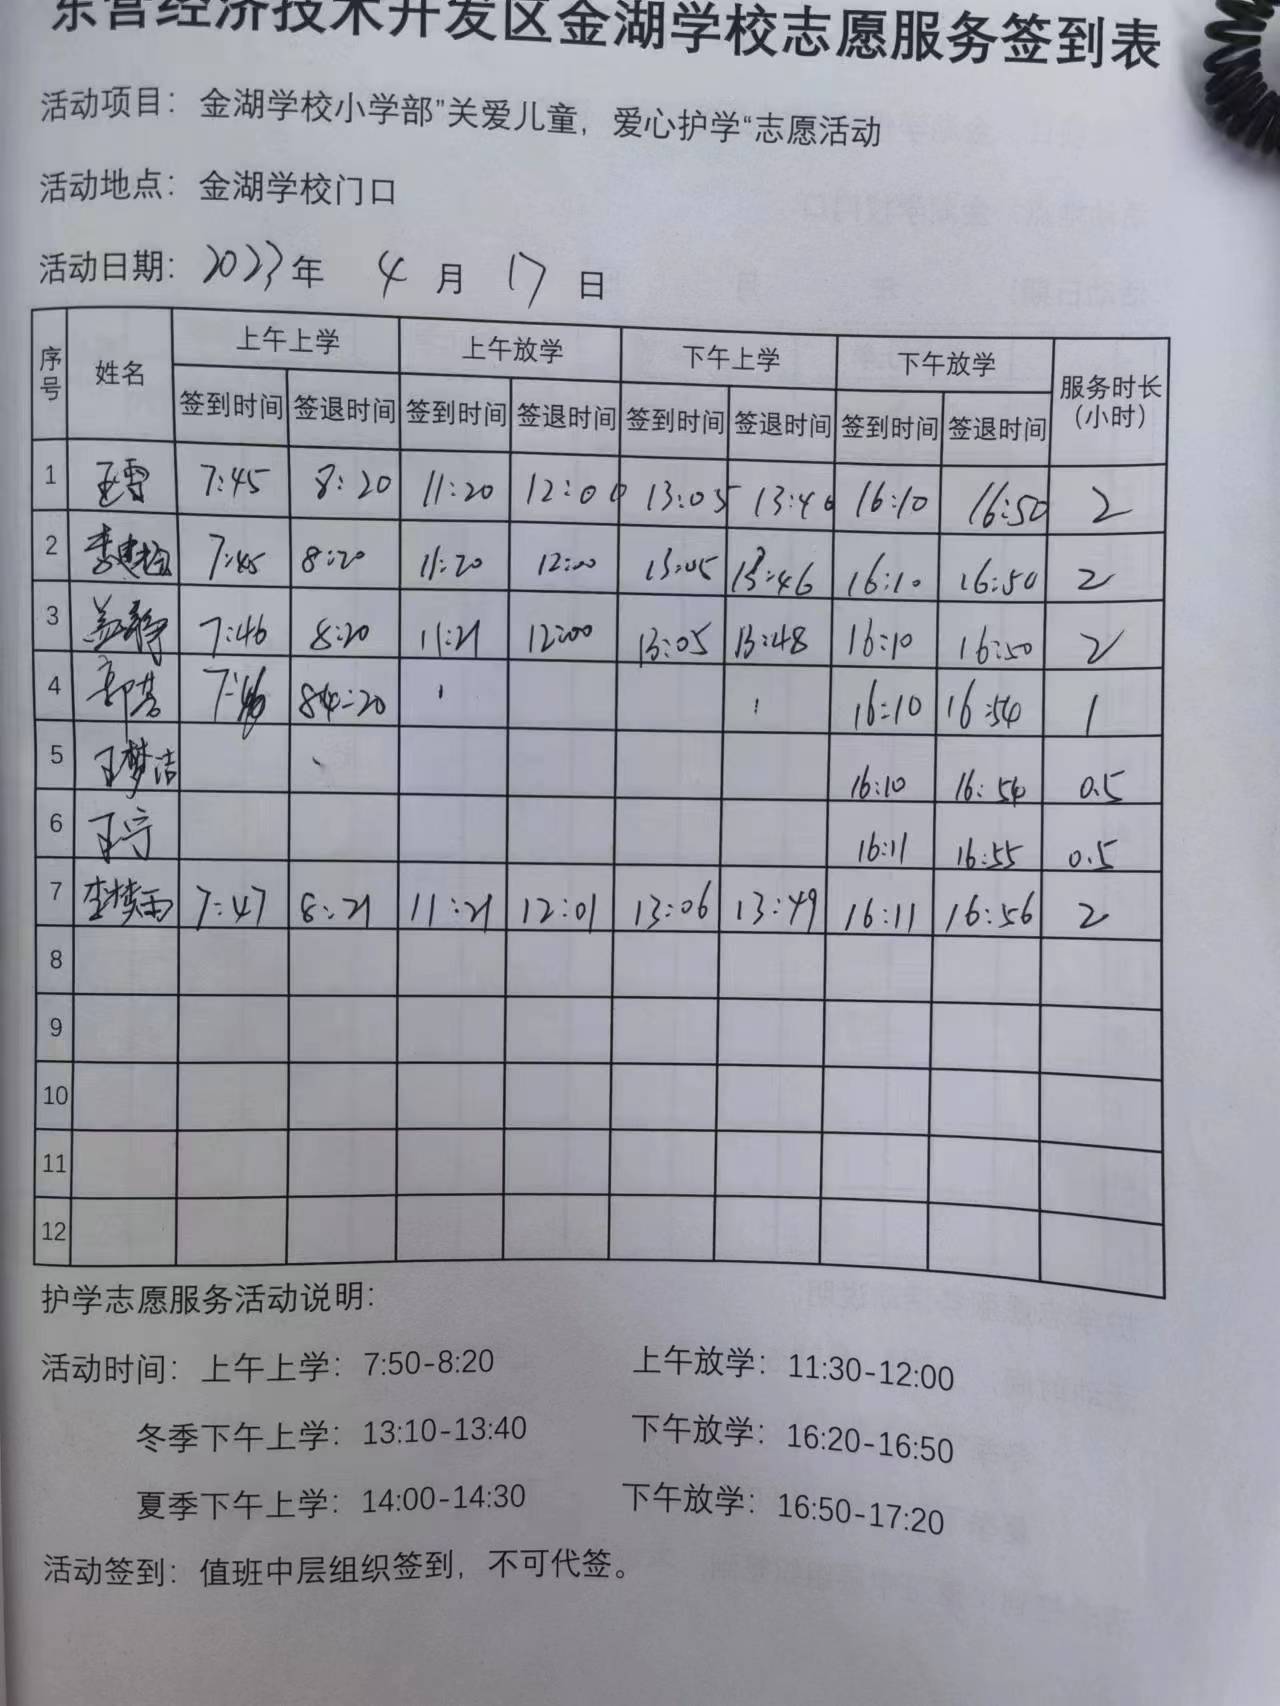 东营经济技术开发区金湖学校志愿服务签到表
活动项目：金湖学校小学部”关爱儿童，爱心护学“志愿活动
活动地点：金湖学校门口
活动日期：2023年 4 月 17 日
序号 姓名 上午上学 上午放学 下午上学 下午放学 服务时长（小时）
签到时间 签退时间 签到时间 签退时间 签到时间 签退时间 签到时间 签退时间
1 王雪 7:45 8:20 11:20 12:00 13:05 13:46 16:10 16:50 2
2 7:45 8:20 11:20 12:00 13:05 13:46 16:10 16:50 2
3 盖静 7:46 8:20 11:21 12:00 13:05 13:48 16:10 16:50 2
4 7:46 8:20 16:10 16:54 1
5 王梦洁 16:10 16:54 0.5
6 王宁 16:11 16:55 0.5
7 7:47 8:21 11:21 12:01 13:06 13:49 16:11 16:56 2
8
9
10
11
12
护学志愿服务活动说明：
活动时间：上午上学：7:50-8:20 上午放学：11:30-12:00
冬季下午上学：13:10-13:40 下午放学：16:20-16:50
夏季下午上学：14:00-14:30 下午放学：16:50-17:20
活动签到：值班中层组织签到，不可代签。